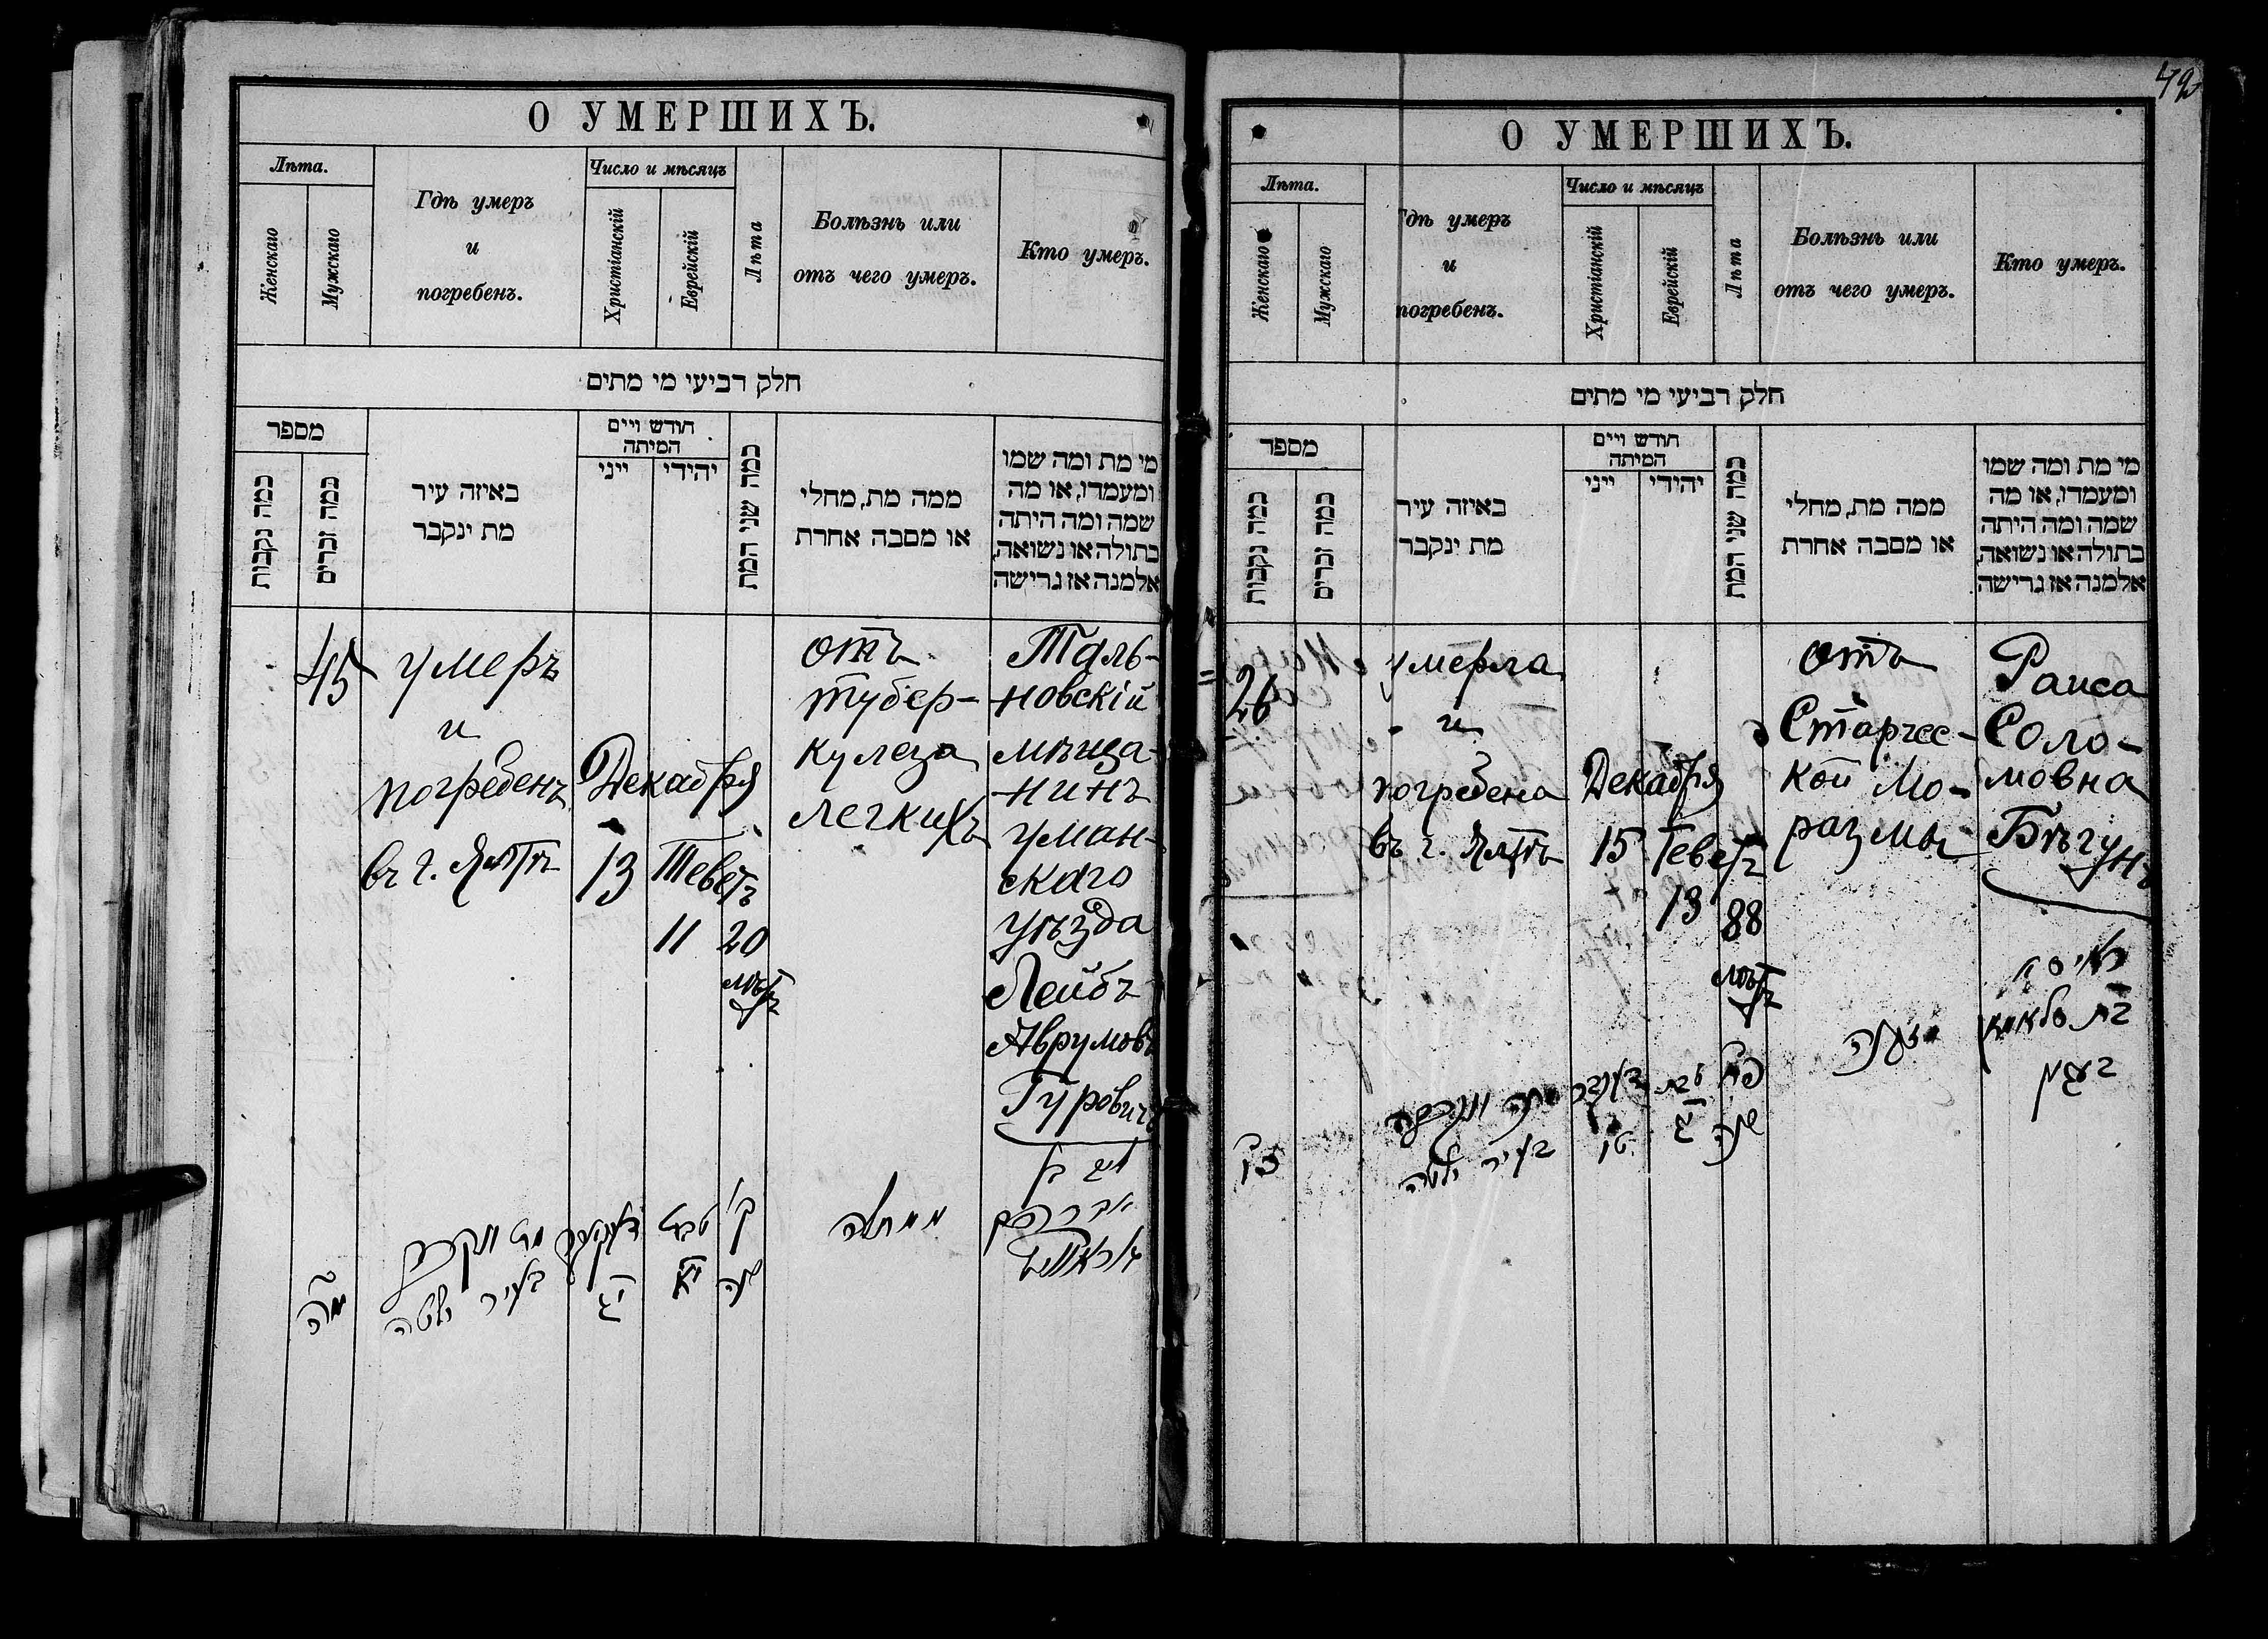 О УМЕРШИХЪ.
Лѣта.
Женскаго
Мужскаго
Гдѣ умеръ
и
погребенъ.
Число и мѣсяцъ
Христіанскій
Еврейскій
Лѣта
Болѣзнь или
отъ чего умеръ.
Кто умеръ.
חלק רביעי מי מתים
מספר
כמה נקבות
כמה זכרים
באיזה עיר
מת ינקבר
חודש ויים
המיתה
ייני
יהידי
כמה שני המת
ממה מת, מחלי
או מסבה אחרת
מי מת ומה שמו
ומעמדו, או מה
שמה ומה היתה
בתולה או נשואה,
אלמנה אז גרישה
45
умеръ
и
погребенъ
въ г. Ялтѣ
Декабря
13
Теветъ
11
20
лѣтъ
отъ
тубер-
кулеза
легкихъ
Таль-
новскій
мѣща-
нинъ
Уман-
скаго
уѣзда
Лейбъ
Аврумовъ
Гуровичъ
מה
מת ונקבר
בעיר ילטה
יג
טבת
יא
כ'
שנה
ממחלה
בן
אברהם
49
О УМЕРШИХЪ.
Лѣта.
Женскаго
Мужскаго
Гдѣ умеръ
и
погребенъ.
Число и мѣсяцъ
Христіанскій
Еврейскій
Лѣта
Болѣзнь или
отъ чего умеръ.
Кто умеръ.
חלק רביעי מי מתים
מספר
כמה נקבות
כמה זכרים
באיזה עיר
מת ינקבר
חודש ויים
המיתה
ייני
יהידי
כמה שני המת
ממה מת, מחלי
או מסבה אחרת
מי מת ומה שמו
ומעמדו, או מה
שמה ומה היתה
בתולה או נשואה,
אלמנה אז גרישה
26
умерла
и
погребена
въ г. Ялтѣ
Декабря
15
Теветъ
13
88
лѣтъ
отъ
Старчес-
кой Мо-
размы
Раиса
Соло-
мовна
Бѣгунъ
כו
מתה ונקברה
בעיר ילטה
טו
טבת
יג
פח
שנה
ראיסא
בת